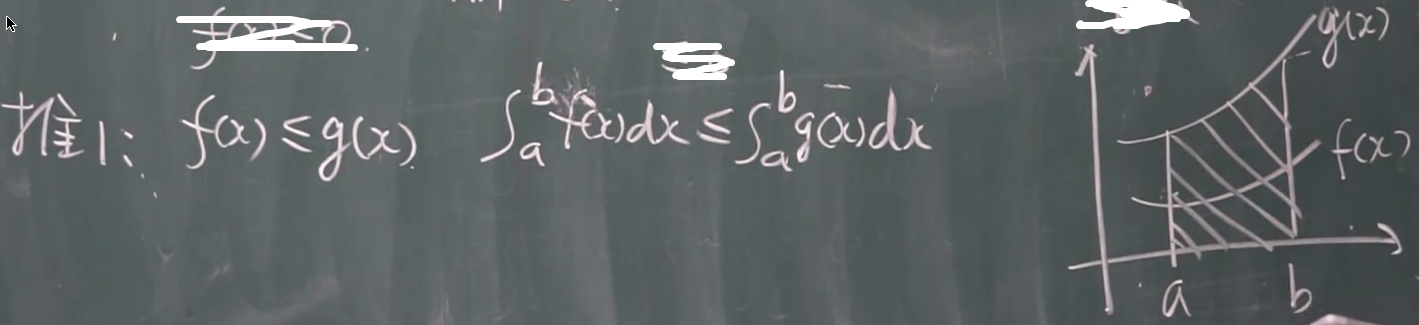 推1: f(x) ≤ g(x)  ∫_a^b f(x)dx ≤ ∫_a^b g(x)dx
g(x)
f(x)
a b